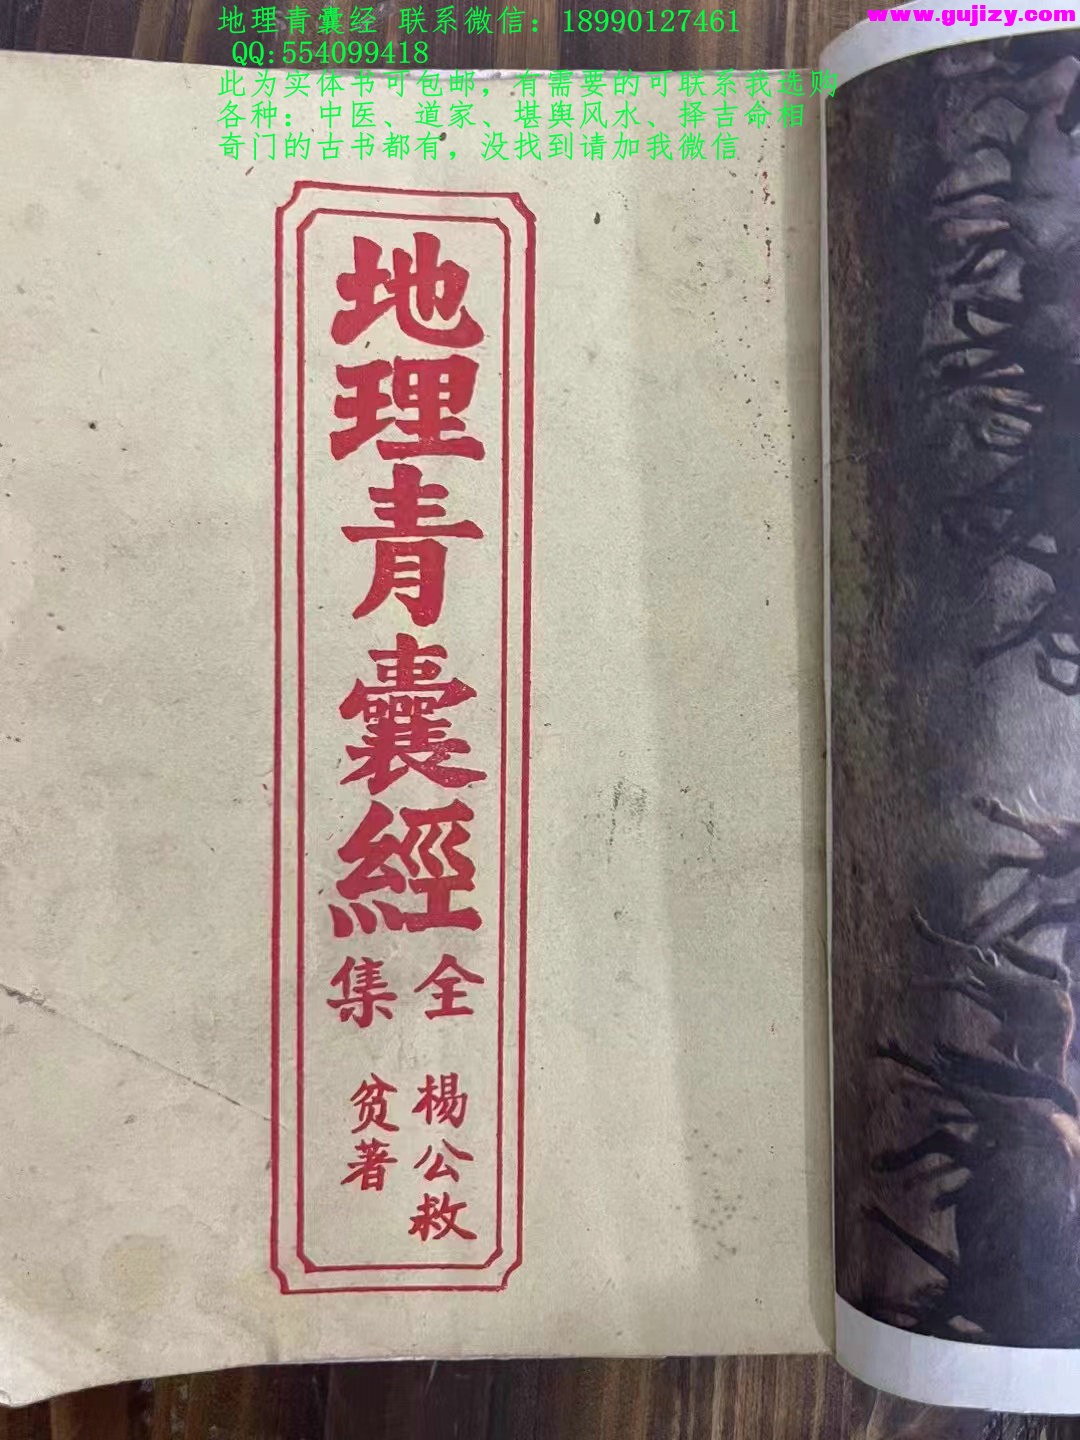 地理青囊经 联系微信：18990127461
QQ:554099418
此为实体书可包邮，有需要的可联系我选购
各种：中医、道家、堪舆风水、择吉命相
奇门的古书都有，没找到请加我微信
www.gujizy.com
地理青囊經
全
集
楊公救
贫著